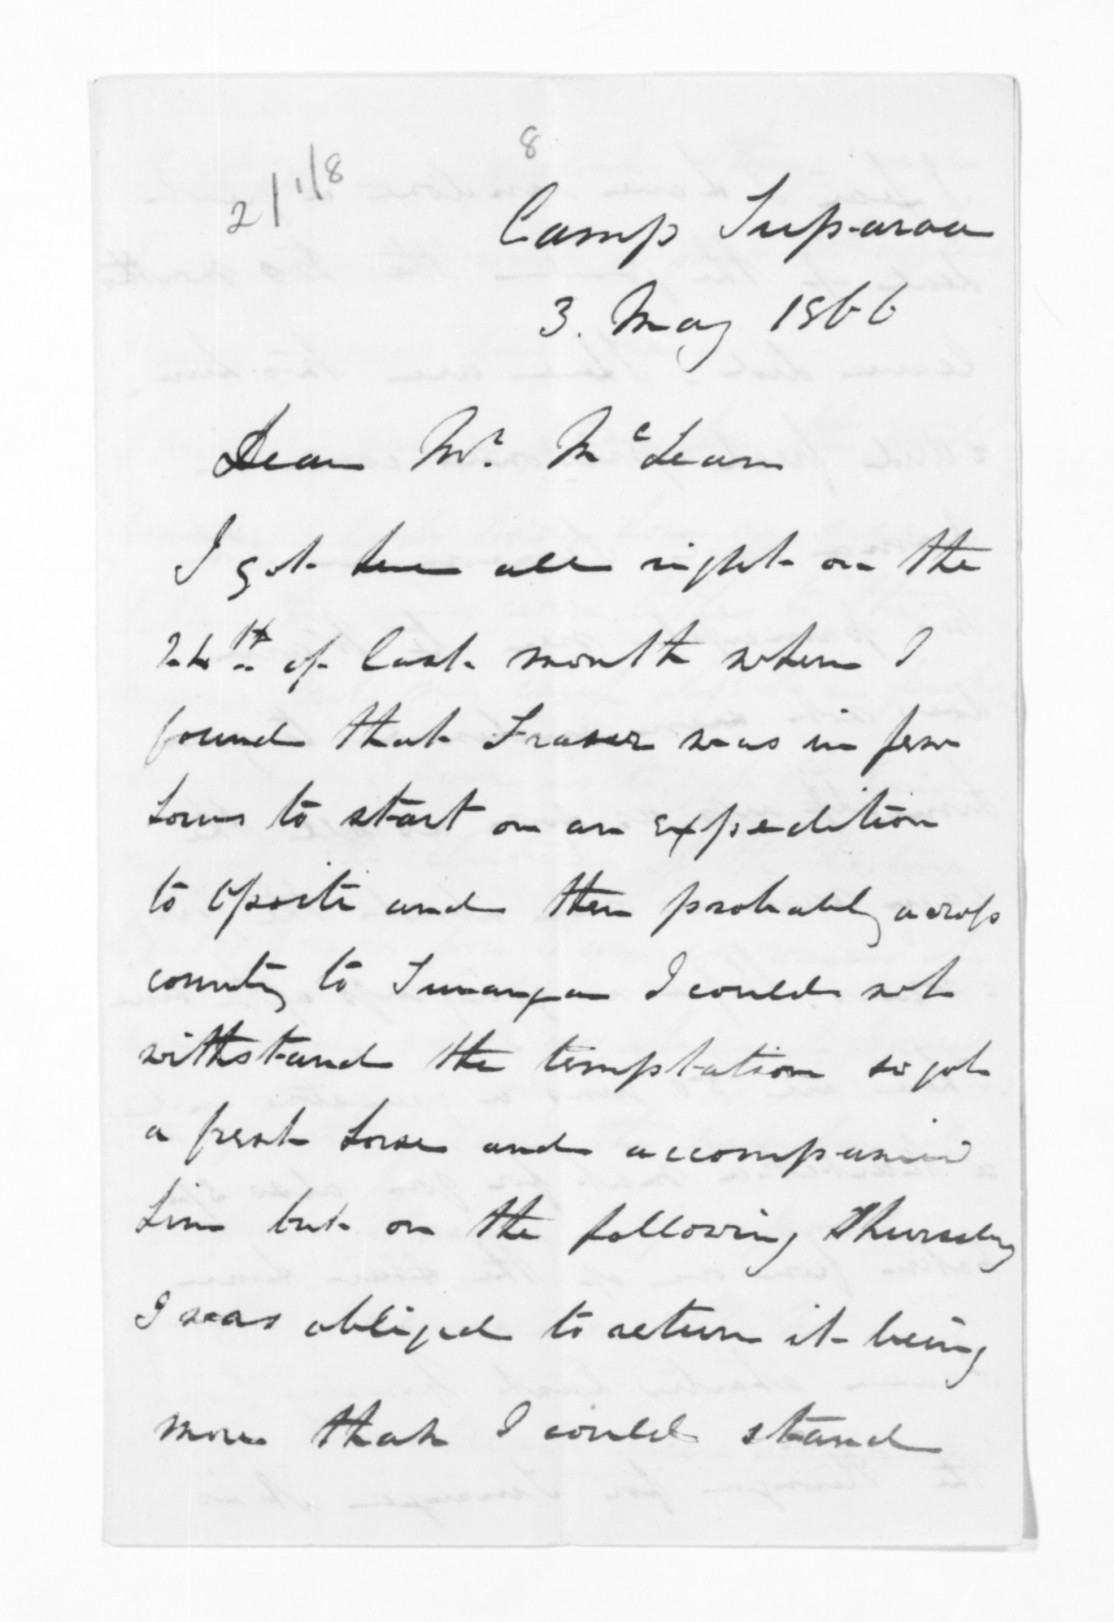 8
2/1/8
Camp Tuparoa
3. May 1866
Dear Mr. McLean
I got here all right on the
24th of last month when I
found that Fraser was in few
hours to start on an expedition
to Opoiti and then probably across
country to Turanga I could not
withstand the temptation so got
a fresh horse and accompanied
him but on the following Thursday
I was obliged to return it being
more than I could stand